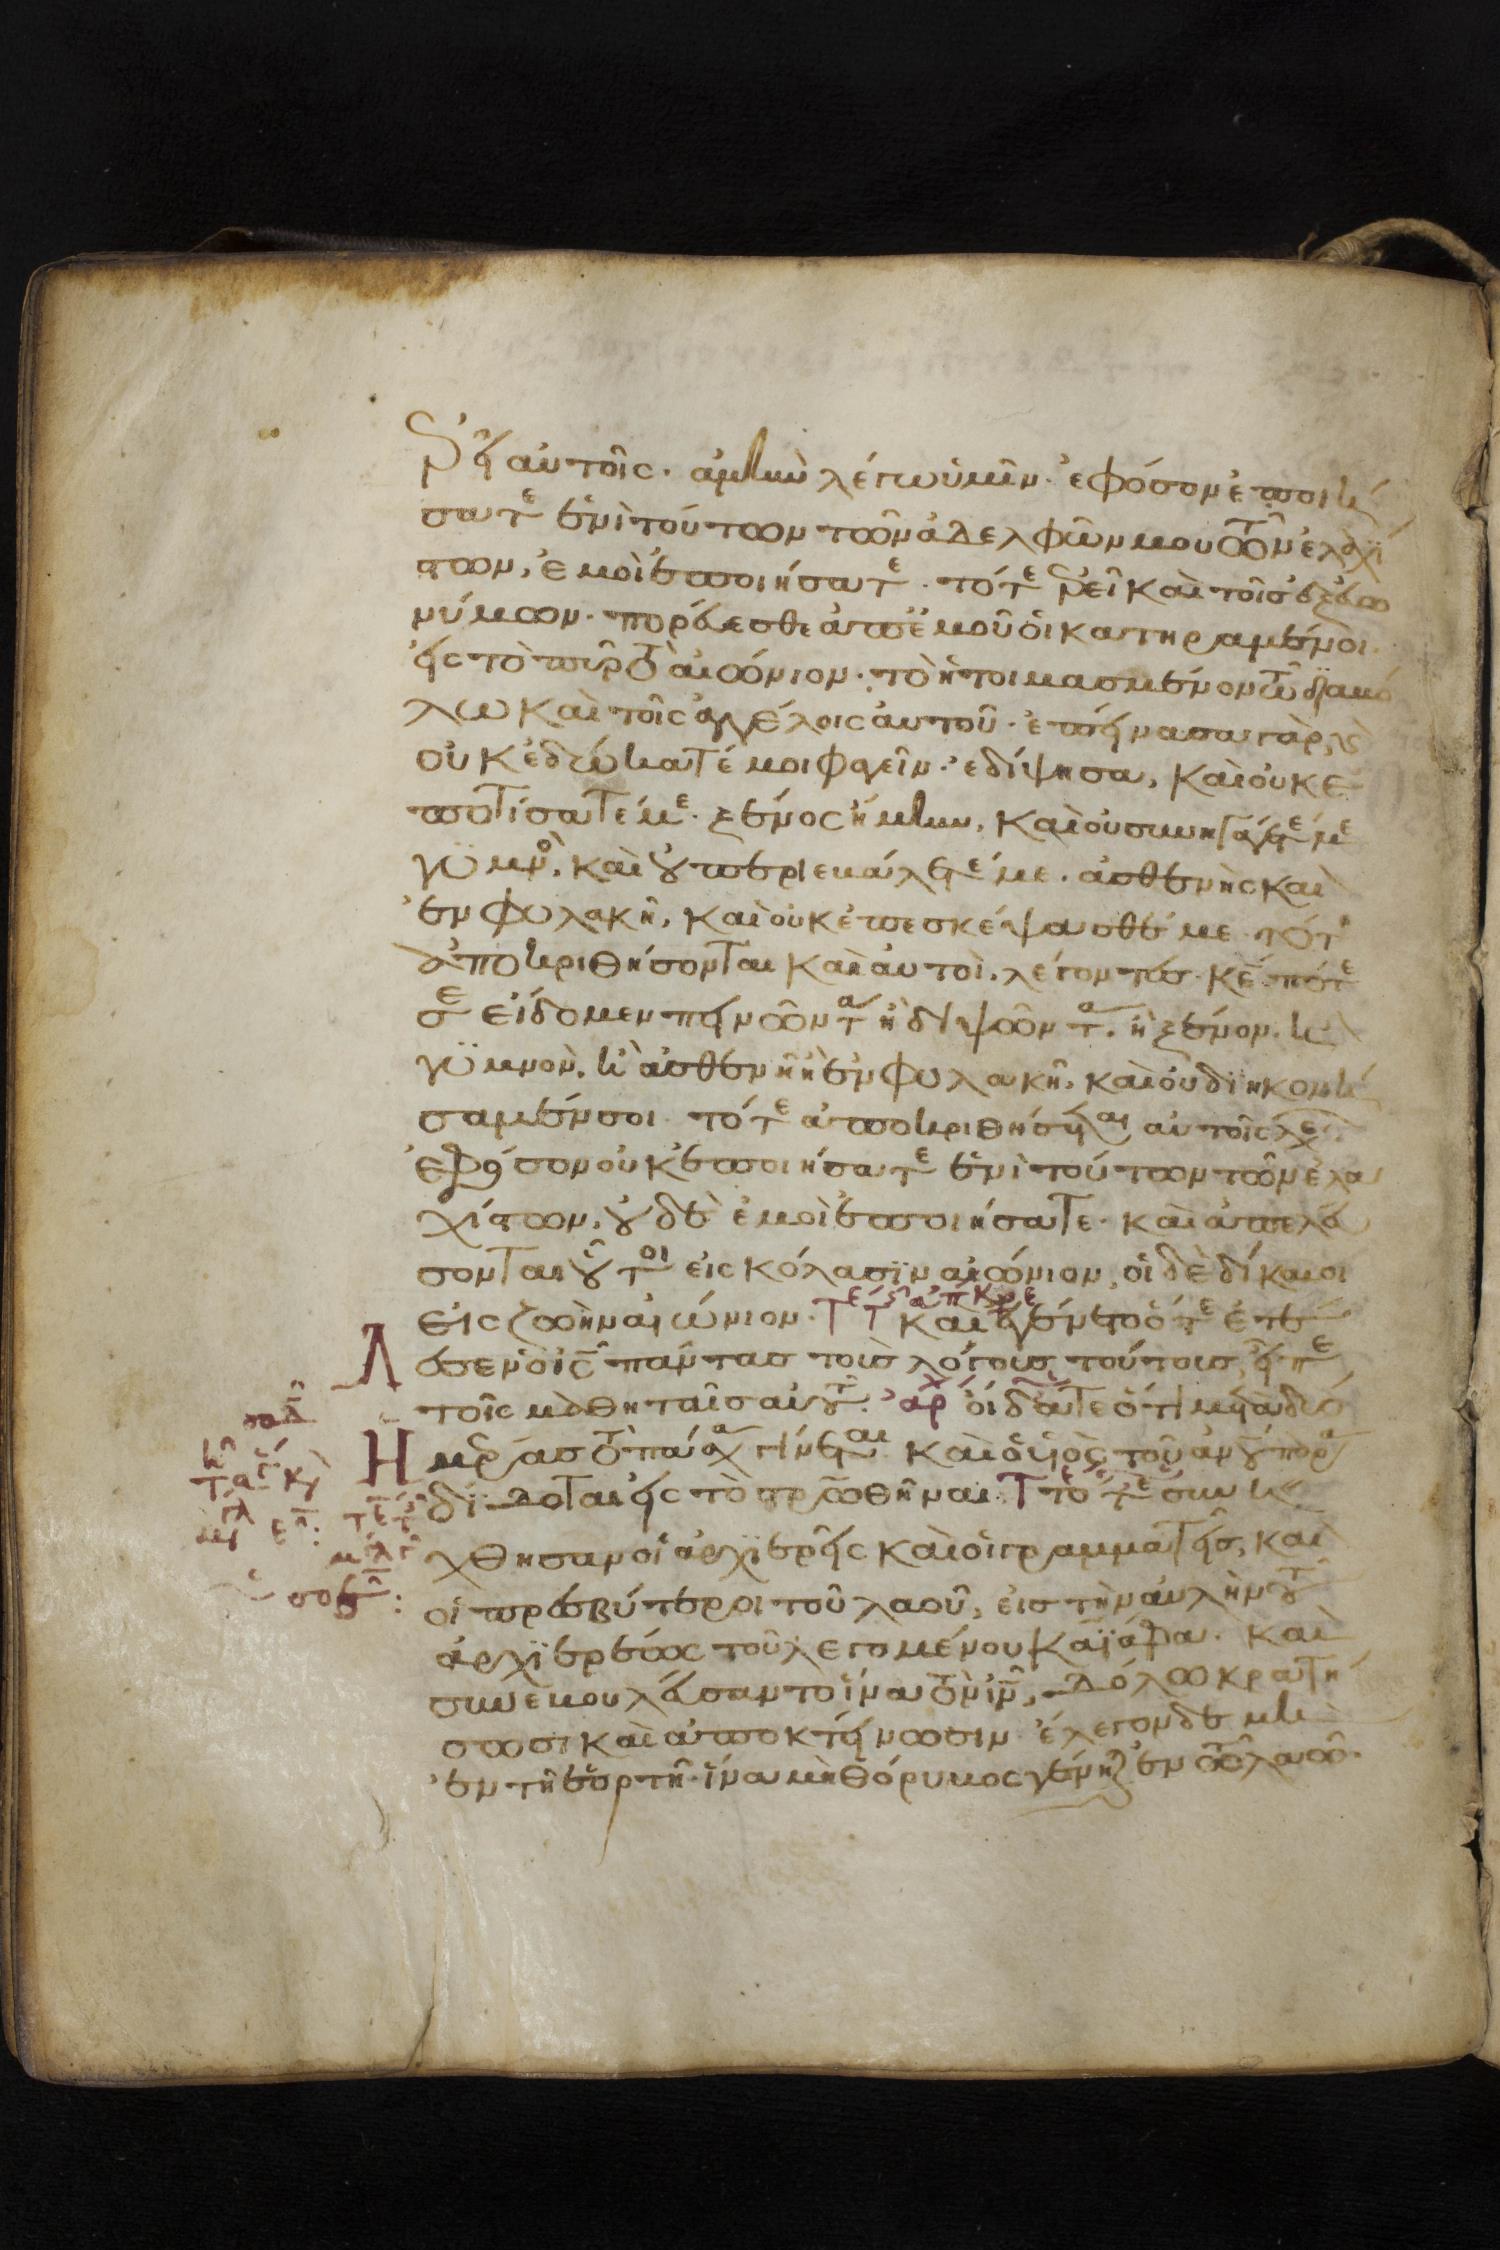 ρεῖ αὐτοῖς· ἀμὴν λέγω ὑμῖν· ἐφόσον ἐποιή
σατε ἑνὶ τούτων τῶν ἀδελφῶν μου τῶν ἐλαχί
στων, ἐμοὶ ἐποιήσατε· τότε ἐρεῖ καὶ τοῖς ἐξ εὐω
νύμων· πορεύεσθε ἀπ' ἐμοῦ οἱ κατηραμένοι
εἰς τὸ πῦρ τὸ αἰώνιον· τὸ ἡτοιμασμένον τῷ διαβό
λω καὶ τοῖς ἀγγέλοις αὐτοῦ· ἐπείνασα γὰρ, καὶ
οὐκ ἐδώκατέ μοι φαγεῖν· ἐδίψησα, καὶ οὐκ ἐ
ποτίσατέ με· ξένος ἤμην, καὶ οὐ συνηγάγετέ με
γϋμνὸς, καὶ οὐ περιεβάλετέ με· ἀσθενὴς καὶ
ἐν φυλακῆ, καὶ οὐκ ἐπεσκέψασθέ με· τότε
ἀποκριθήσονται καὶ αὐτοὶ, λέγοντες· κε πότε
σε εἴδομεν πεινῶντα ἢ διψῶντα, ἢ ξένον, ἢ
γϋμνὸν, ἢ ἀσθενῆ ἢ ἐν φυλακῆ, καὶ οὐ διηκονή
σαμέν σοι τότε ἀποκριθήσεται αὐτοῖς λέγων
ἐφόσον οὐκ ἐποιήσατε ἑνὶ τούτων τῶν ἐλα
χίστων, οὐδὲ ἐμοὶ ἐποιήσατε· καὶ ἀπελεύ
σονται οὗτοι εἰς κόλασϊν αἰώνιον, οἱ δὲ δίκαιοι
εἰς ζωὴν αἰώνιον· καὶ ἐγένετο ὅτε ἐτέ
λεσεν ὁ ις πάντας τοὺς λόγους τούτους, εἶπε
τοῖς μαθηταῖς αὐτοῦ· οἴδατε ὅτι μετὰ δύο
ἡμέρας τὸ πάσχα γίνεται καὶ ὁ υἱὸς τοῦ ανου παρα
δίδοται εἰς τὸ στρωθῆναι· τότε συνή
χθησαν οἱ ἀρχϊερεῖς καὶ οἱ γραμματεῖς, καὶ
οἱ πρεσβύτεροι τοῦ λαοῦ, εἰς τὴν αὐλὴν τοῦ
ἀρχϊερέως τοῦ λεγομένου Καϊάφα· καὶ
συνεβουλεύσαντο ἵνα τὸν ιν, δόλω κρατή
σωσι καὶ ἀποκτείνωσιν· ἔλεγον δὲ μὴ
ἐν τῆ ἑορτῆ· ἵνα μὴ θόρυβος γένηται ἐν τῶ λαῶ·